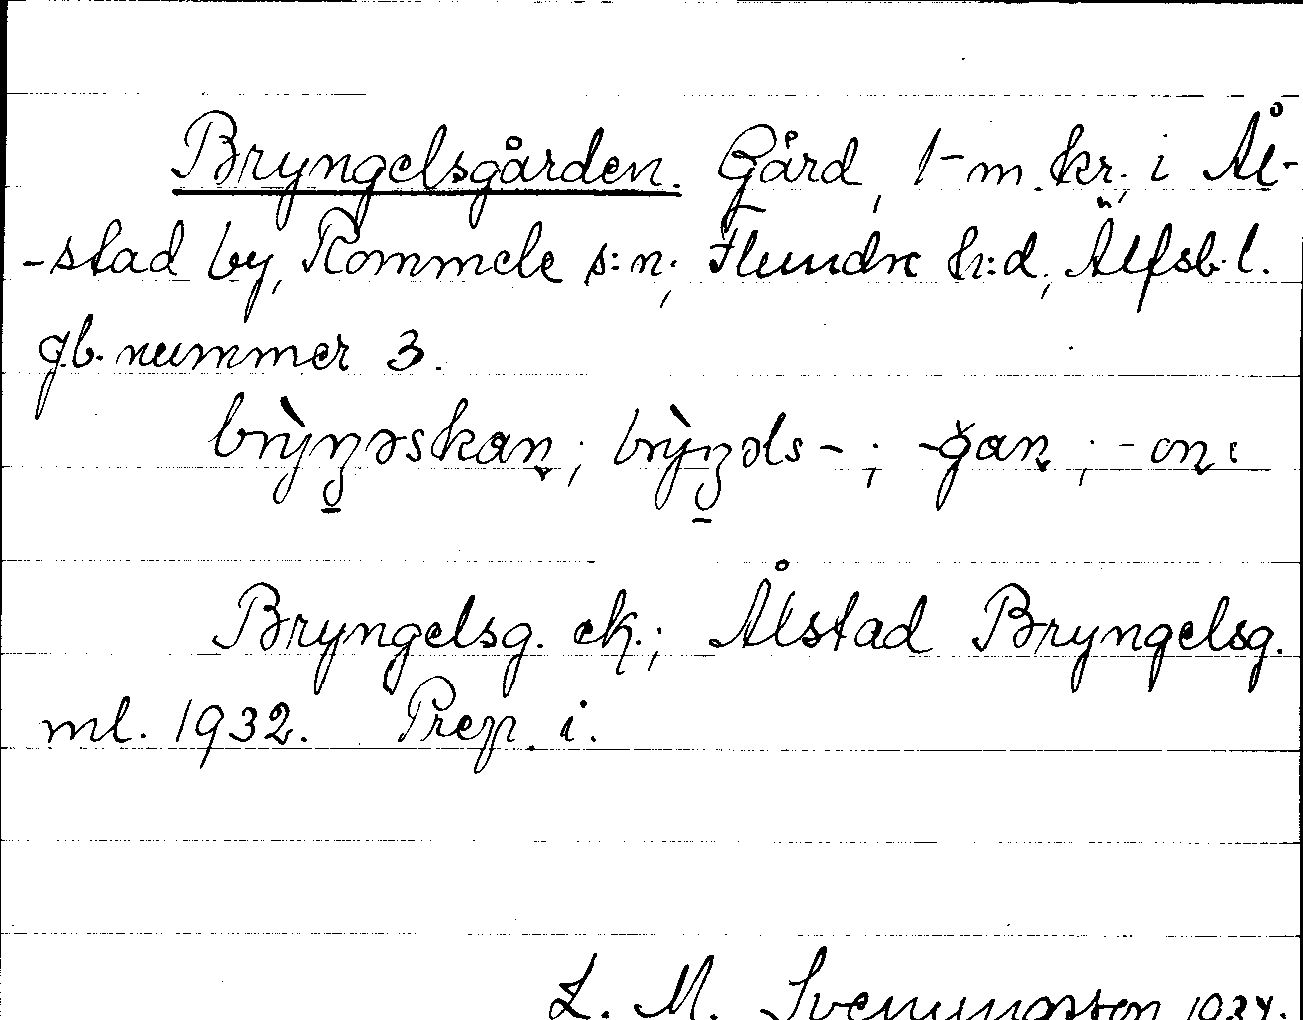 Bryngelsgården. Gård, 1-m. kr. i Ål-
-stad by, Rommele s:n, Flundre h:d, Älfsb. l.
g.b. nummer 3.
brỳŋəskaṇ; brỳŋəls-; -gaṇ; -
Bryngelsg. ek.; Ålstad Bryngelsg.
ml. 1932. Prep. i.
L. M. Svenungsson 1934.